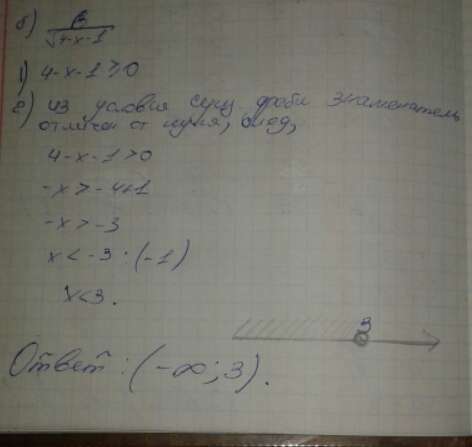 б) 6/√4-x-1
1) 4-x-1≥0
2) из условия сущ. дроби знаменатель
отличен от нуля, след,
4-x-1>0
-x>-4+1
-x>-3
x<-3:(-1)
x<3.
3
Ответ: (-∞; 3).